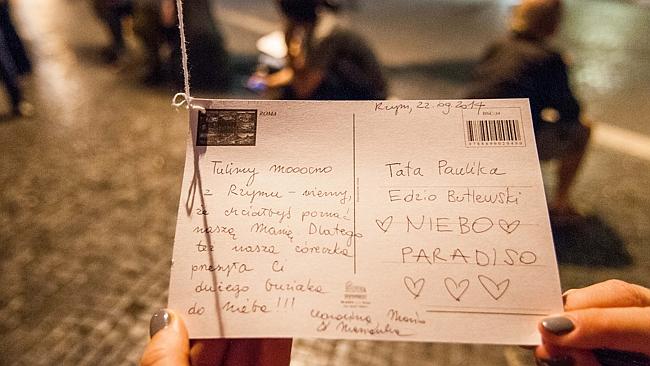 Rzym, 22.09.2014
ROMA
Tulimy mooocno
z Rzymu - wiemy,
że chciałbyś poznać
naszą Mamę. Dlatego
też nasza córeczka
przesyła Ci
dużego buziaka
do nieba!!!
Tata Paulika
Edzio Butlewski
♡ NIEBO ♡
PARADISO
♡ ♡ ♡